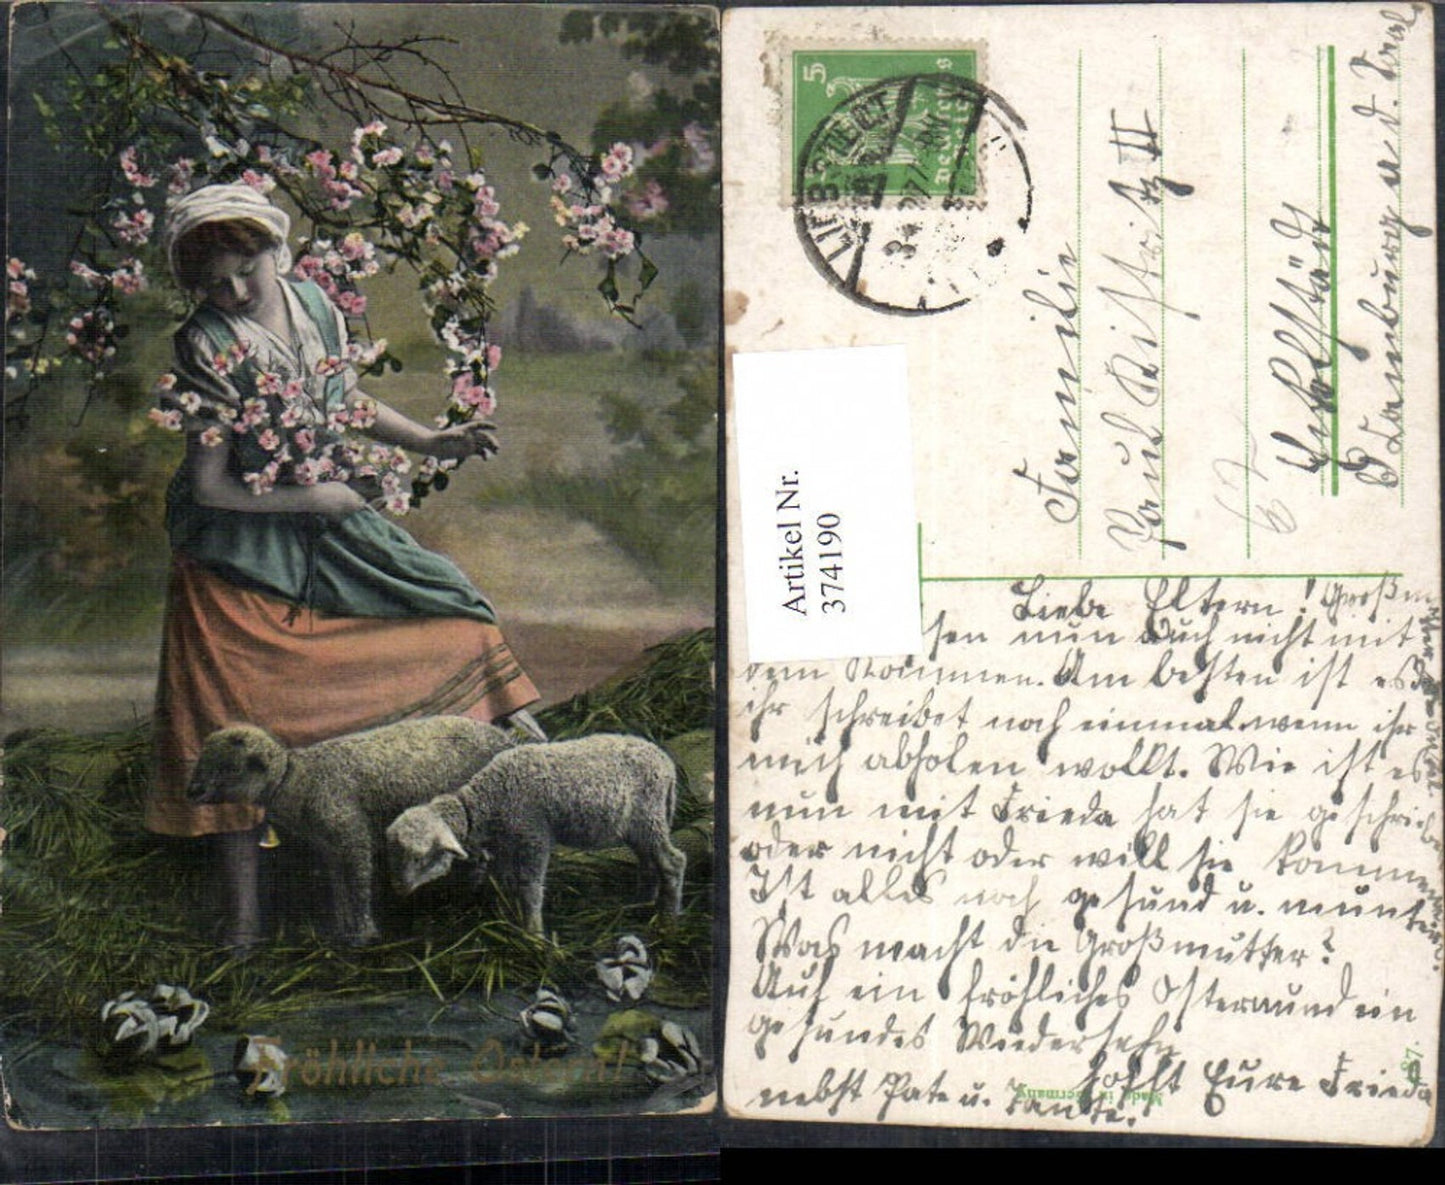 Fröhliche Ostern!
5
Deutsches
Artikel Nr.
374190
Familie
Paul
Wohlstädt
Blankenburg a. d. Saal
62
Liebe Eltern! Großm
nun Euch nicht mit
dem Kommen. Am besten ist es
ihr schreibet noch einmal wenn ihr
mich abholen wollt. Wie ist es
nun mit Frieda hat sie geschrieb
oder nicht oder will sie kommen
Ist alles noch gesund u. munter
Was macht die Großmutter?
Auf ein fröhliches Osternund ein
gesundes Wiedersehn
hofft Eure Frieda
nebst Pate u. Tante.
Made in Germany